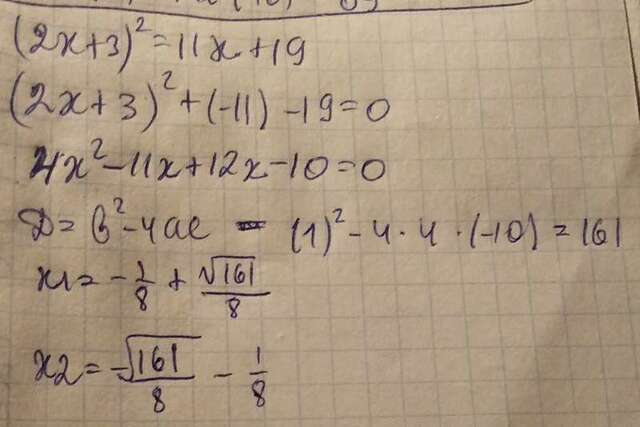 (2x+3)²=11x+19
(2x+3)²+(-11)-19=0
4x²-11x+12x-10=0
D=b²-4ac - (1)²-4·4·(-10)=161
x1=-1/8+√161/8
x2=-√161/8-1/8